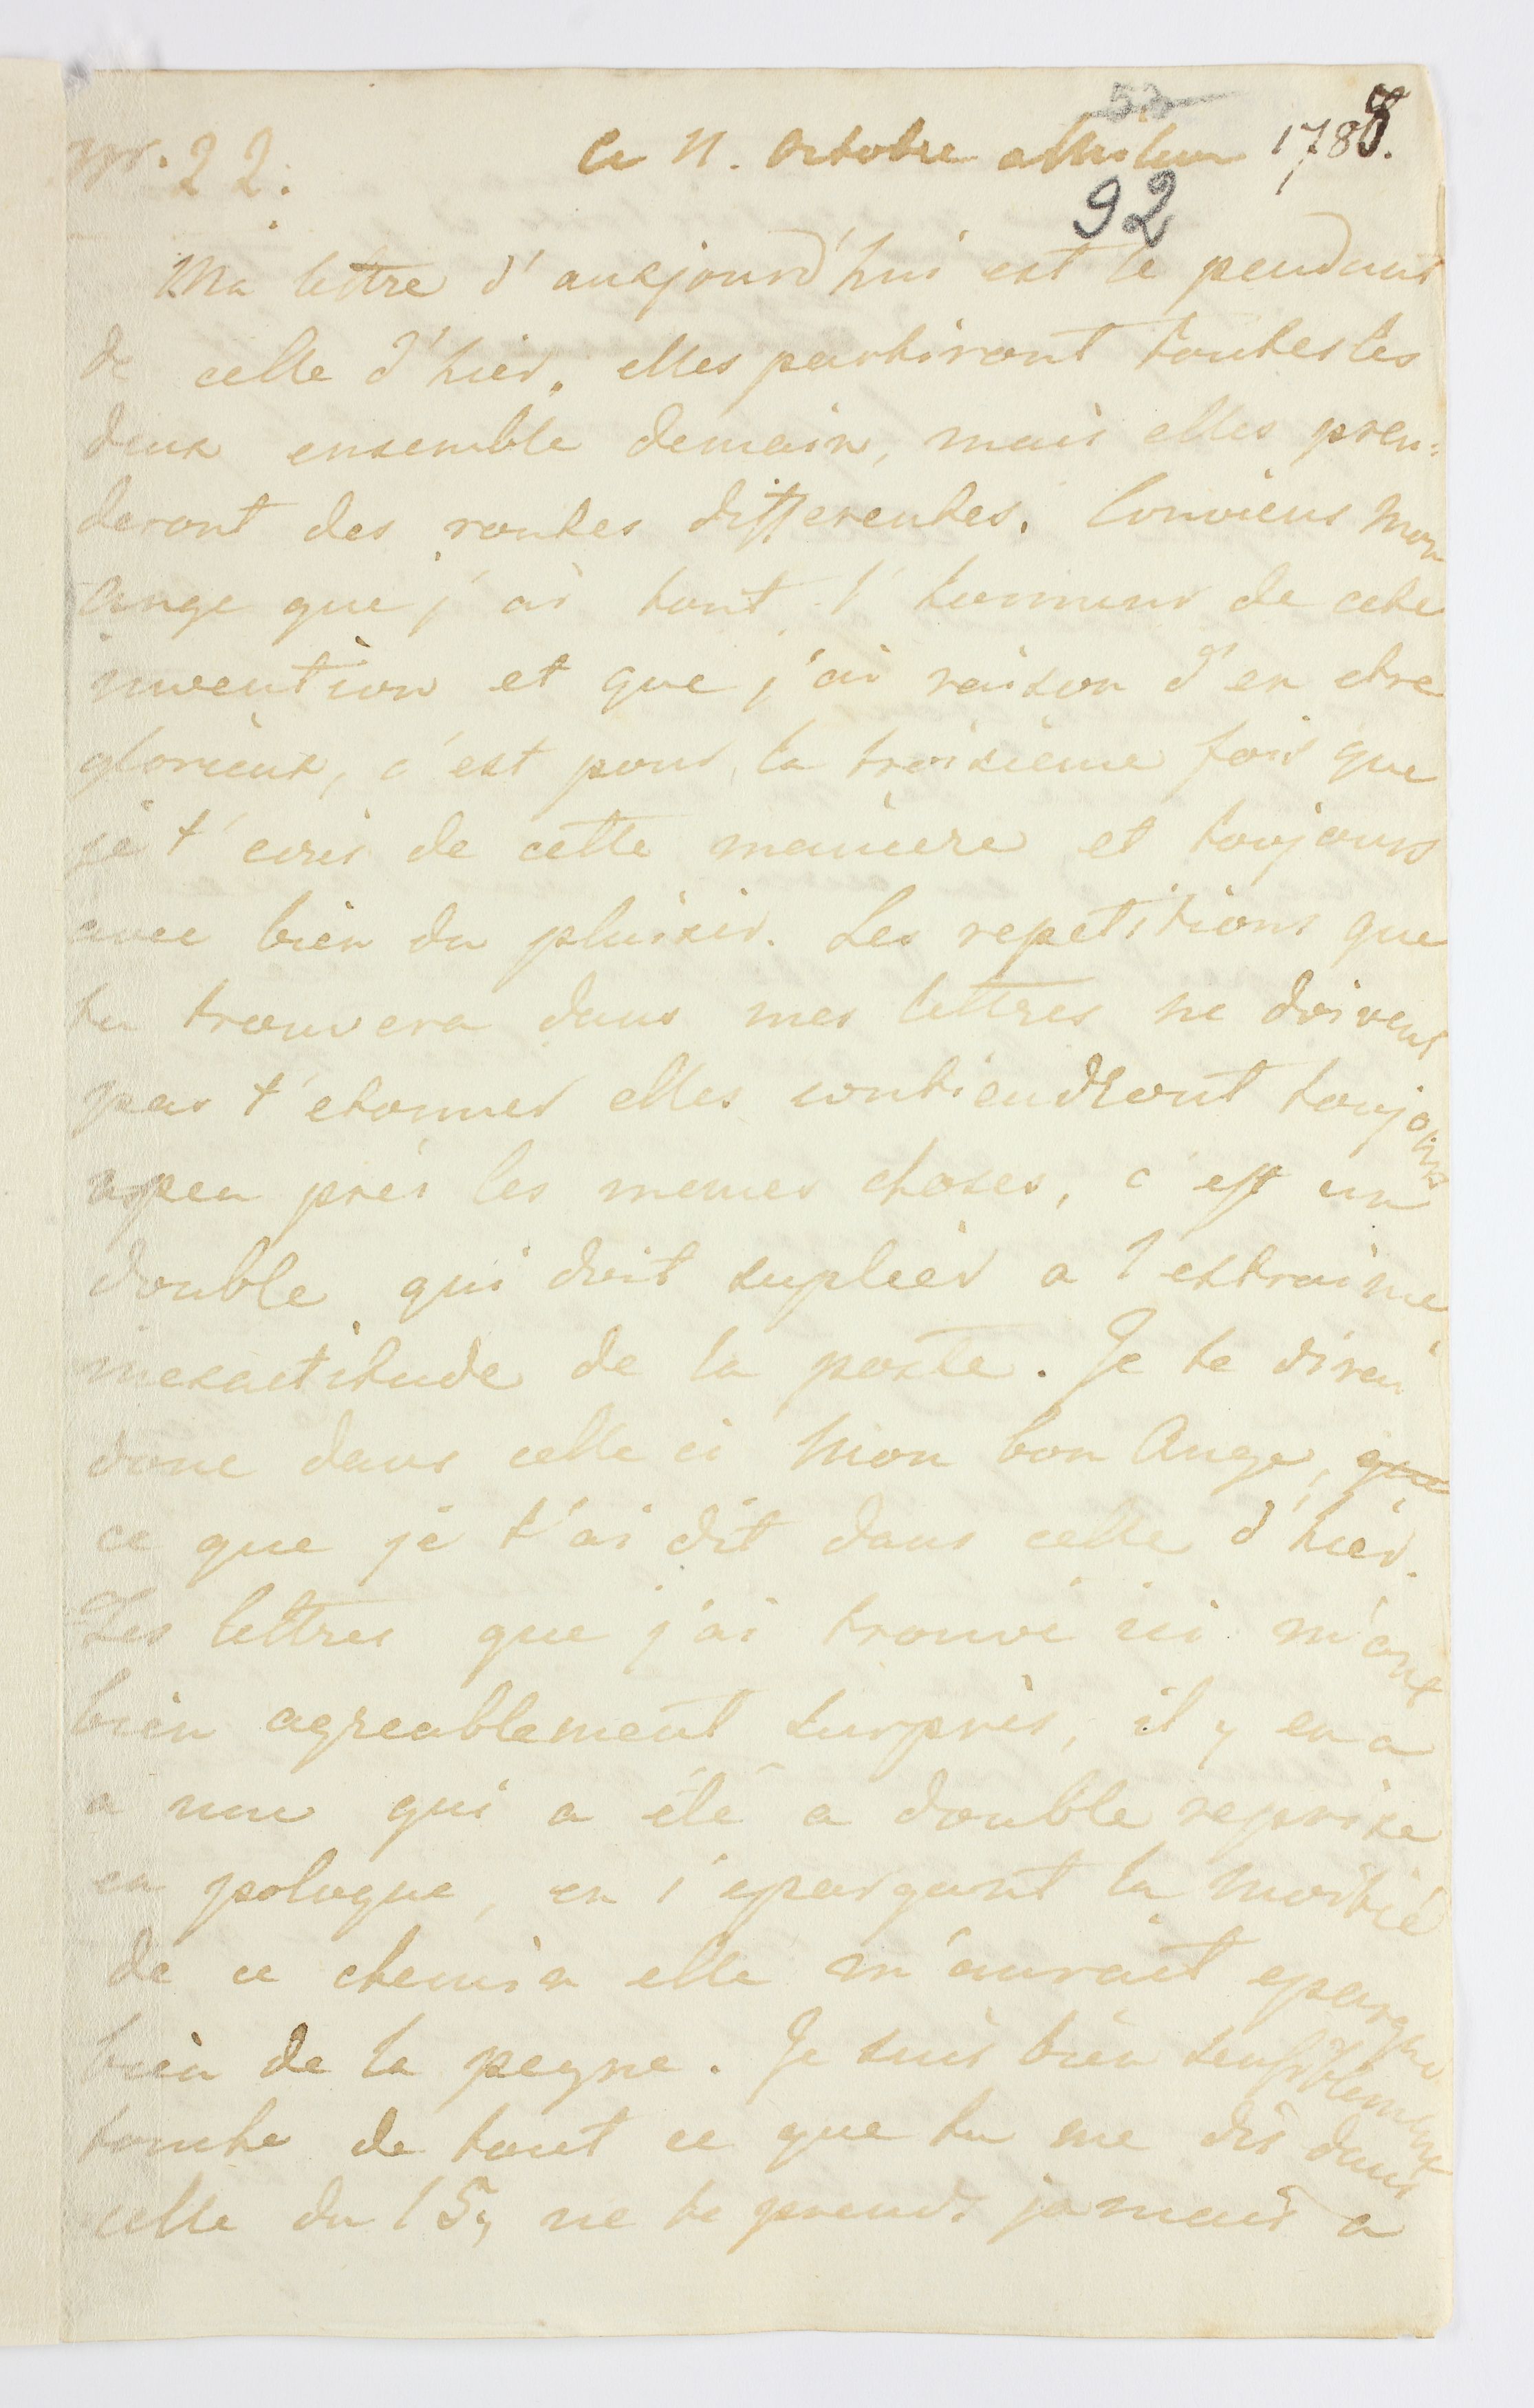 53
nr. 22. Ce 11. Octobre a Milan 1788.
92
Ma lettre d'aujourd'hui est le pendant
de celle d'hier. elles partiront toutes les
deux ensemble demain, mais elles pren-
deront des routes differentes. Conviens mon
ange que j'ai tout l'honneur de cete
invention et que j'ai raison d'en etre
glorieux, c'est pour la troisieme fois que
je t'ecris de cette maniere et toujours
avec bien du plaisir. Les repetitions que
tu trouvera dans mes lettres ne doivent
pas t'etonner elles contiendront toujours
apeu prés les memes choses, c'est un
double qui doit supleer a l'extraime
inexactitude de la poste. Je te dirai
donc dans celle ci Mon bon Ange, que
ce que je t'ai dit dans celle d'hier.
Les lettres que j'ai trouvé ici m'ont
bien agreablement surpris, il y en a
a une qui a été a double reprise
en pologne, en s'epargant la moitié
de ce chemin elle m'aurait epargné
bien de la peyne. Je suis bien sensiblement
touche de tout ce que tu me dis dans
celle du 15, ne te prend jamais a